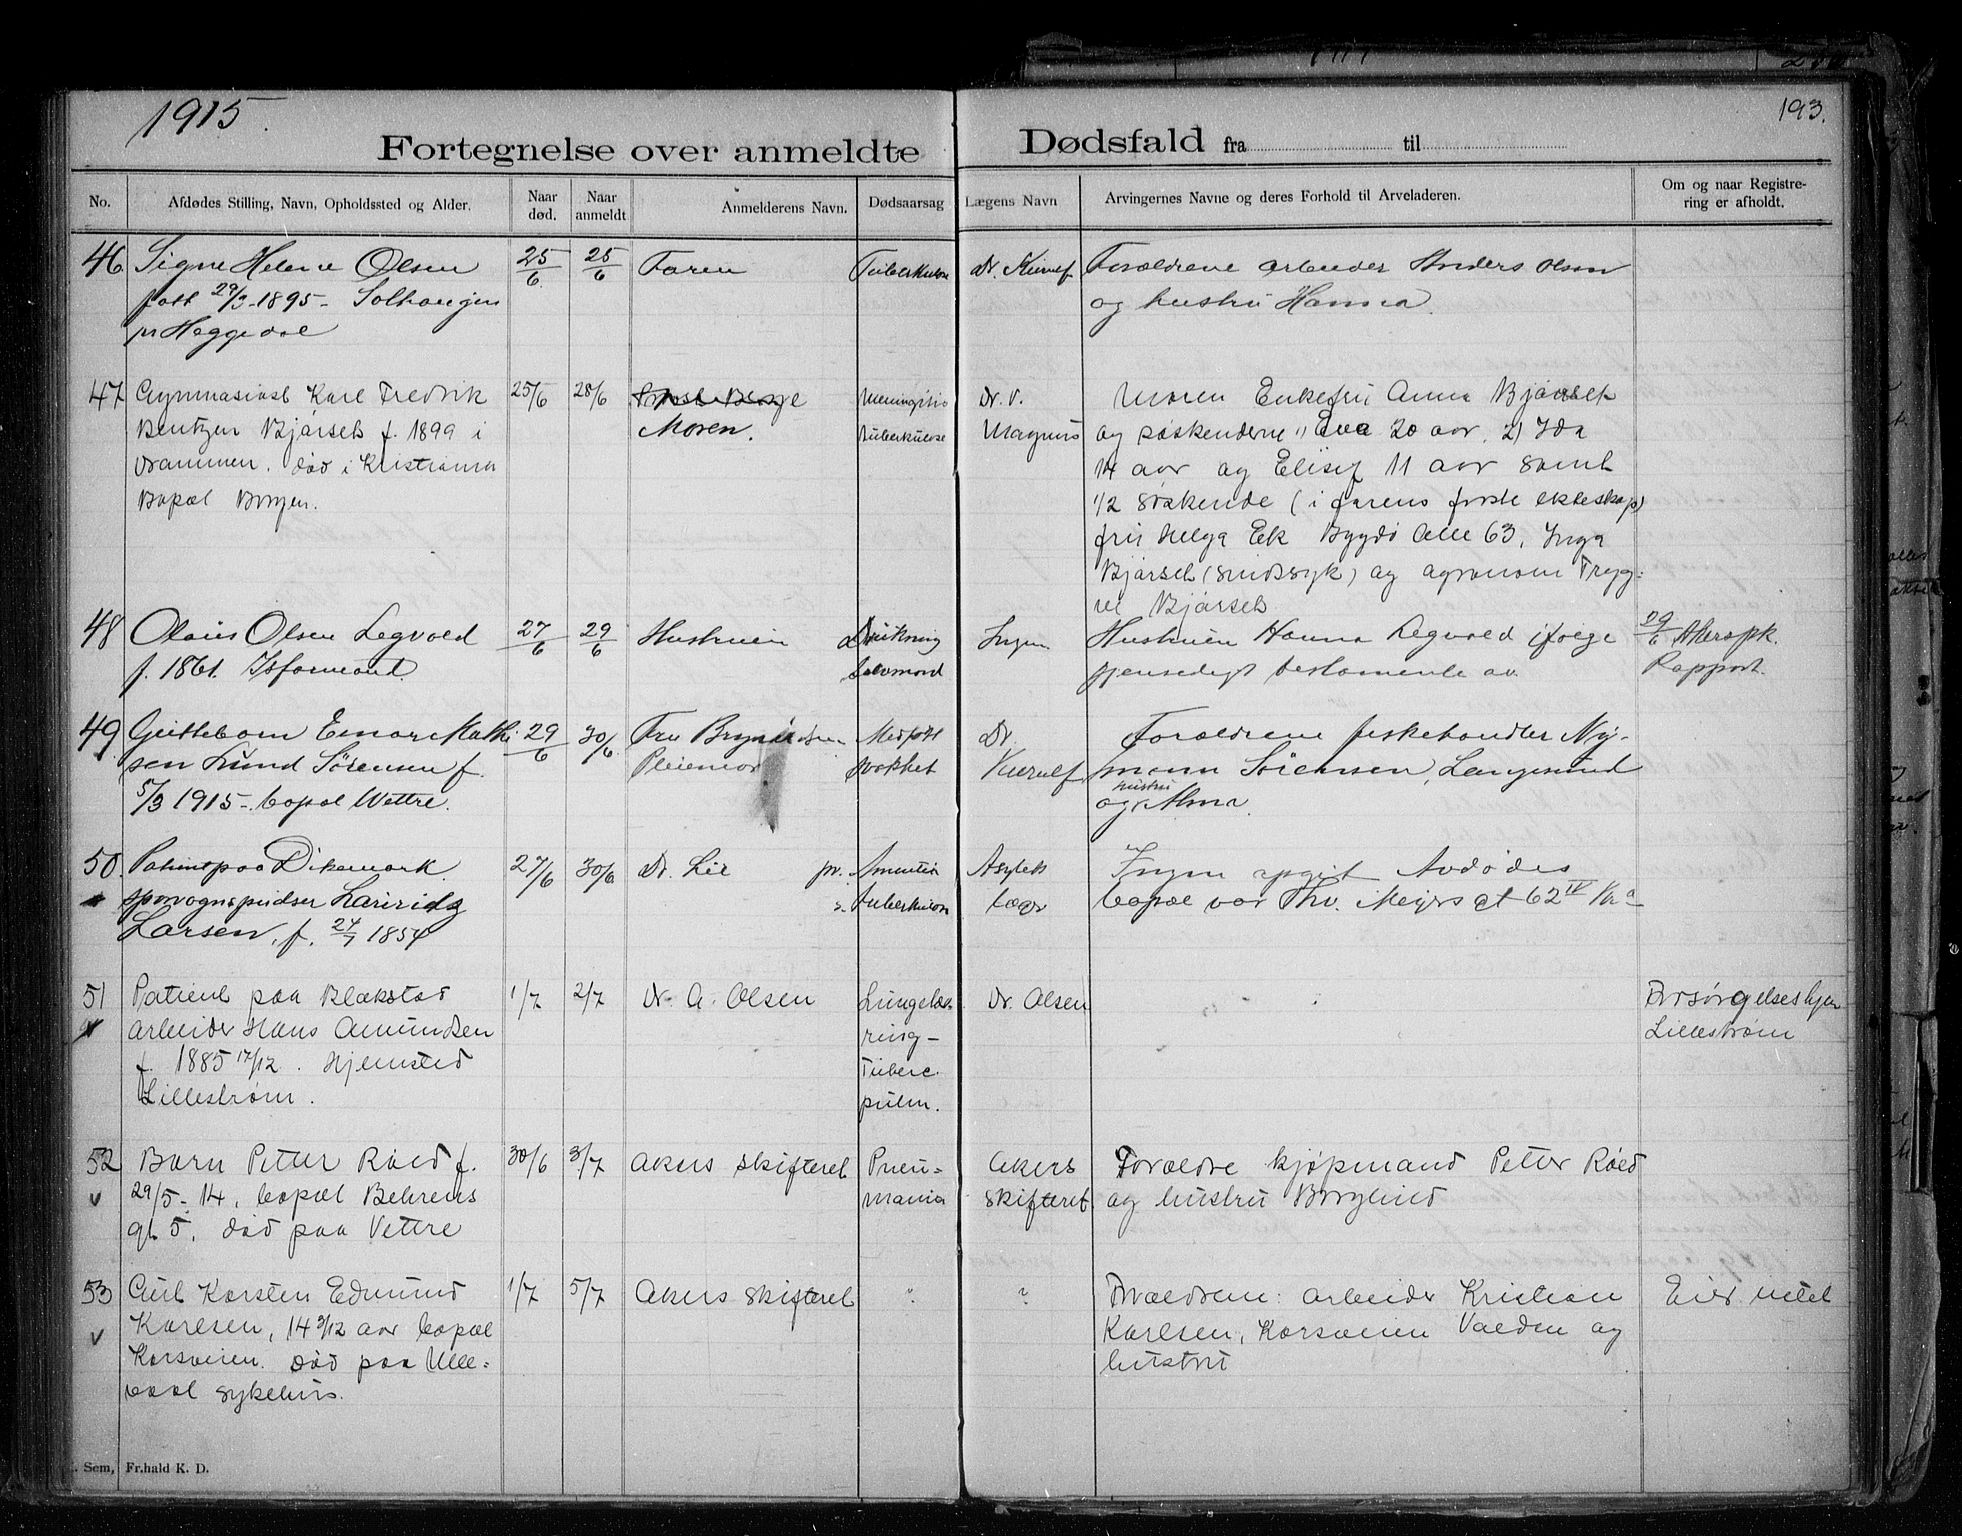 1915.
193.
Fortegnelse over anmeldte Dødsfald fra til
No. Afdødes Stilling, Navn, Opholdssted og Alder. Naar død. Naar anmeldt Anmelderens Navn. Dødsaarsag Lægens Navn Arvingernes Navne og deres Forhold til Arveladeren. Om og naar Registrering er afholdt.
46 Signe Helene Olsen 25/6 25/6 Faren Tuberkulose Dr. Kierulf Forældrene arbeider Anders Olsen
født 29/3-1895- Solhaugen og hustru Hanna.
pr Heggedal
47 Gymnasiast Karl Fredrik 25/6 28/6 Meningitis Dr. V. Moren Enkefru Anna Bjørset
Bentzen Bjørseth f. 1899 i Moren. tuberkulose Magnus og søskenderne 1) Eva 20 aar, 2) Ida
Drammen. død i Kristiania 14 aar og Elisef 11 aar samt
Bopæl Borgen. 1/2 søskende (i farens første ekteskap)
fru Helga Ek Bygdø Alle 63, Inga
Bjørseth (sindssyk) og agronom Tryg-
ve Bjørseth
48 Olaus Olsen Legvold 27/6 29/6 Hustruen Drukning Ingen Hustruen Hanna Legvold ifølge 29/6 Akers pk.
f. 1861. Isformand selvmord gjensedigt testamente av Rapport.
49 Guttebarn Einar Mathi 29/6 30/6 Fru Medfødt Dr. Forældrene fiskehandler Ny-
sen Lund Sørensen f. Pleiemor svakhet Kierulf mann Sørensen, Langesund
5/3 1915- bopæl Vettre. og hustru Alma.
50. Patient paa Dikemark 27/6 30/6 Dr. Lie pr. Amentia Asylets Ingen opgit Avdødes
sporvognspudser Lauridz s. Tuberkulose læge bopæl var Thv. Meyers gt 62 IV Kr.a
Larsen, f. 24/7 1854
51 Patient paa Blakstad 1/7 2/7 Dr. A. Olsen Lungetæ- Dr. Olsen " Forsørgelseshjem
arbeider Hans Amundsen ring- Lillestrøm
f. 1885 17/12. Hjemsted Tuberc.
Lillestrøm. pulm.
52 Barn Petter Røed f. 30/6 3/7 Akers skifteret Pneu- Akers Forældre kjøpmand Petter Røed
v 29/5-14, bopæl Behrens monia skifteret og hustru Borghild
gt 5. død paa Vettre
53 Gut Karsten Edmund 1/7 5/7 Akers skifteret " " Forældrene: arbeider Kristian Eier intet
v Karlsen, 14 9/12 aar bopæl Karlsen, Korsveien Valden og
Korsveien. død paa Ulle- hustru
vaal sykehus.
Sem, Fr.hald K. D.